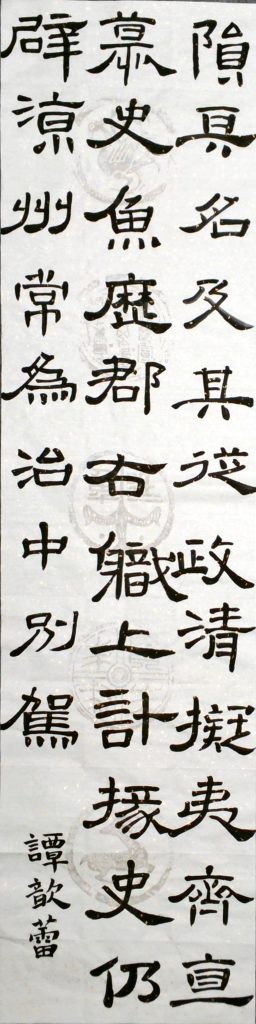 隕亓名及其從政清擬夷齊直
慕史魚歷郡右職上計掾史仍
辟涼州常為治中別駕
譚歆蕾